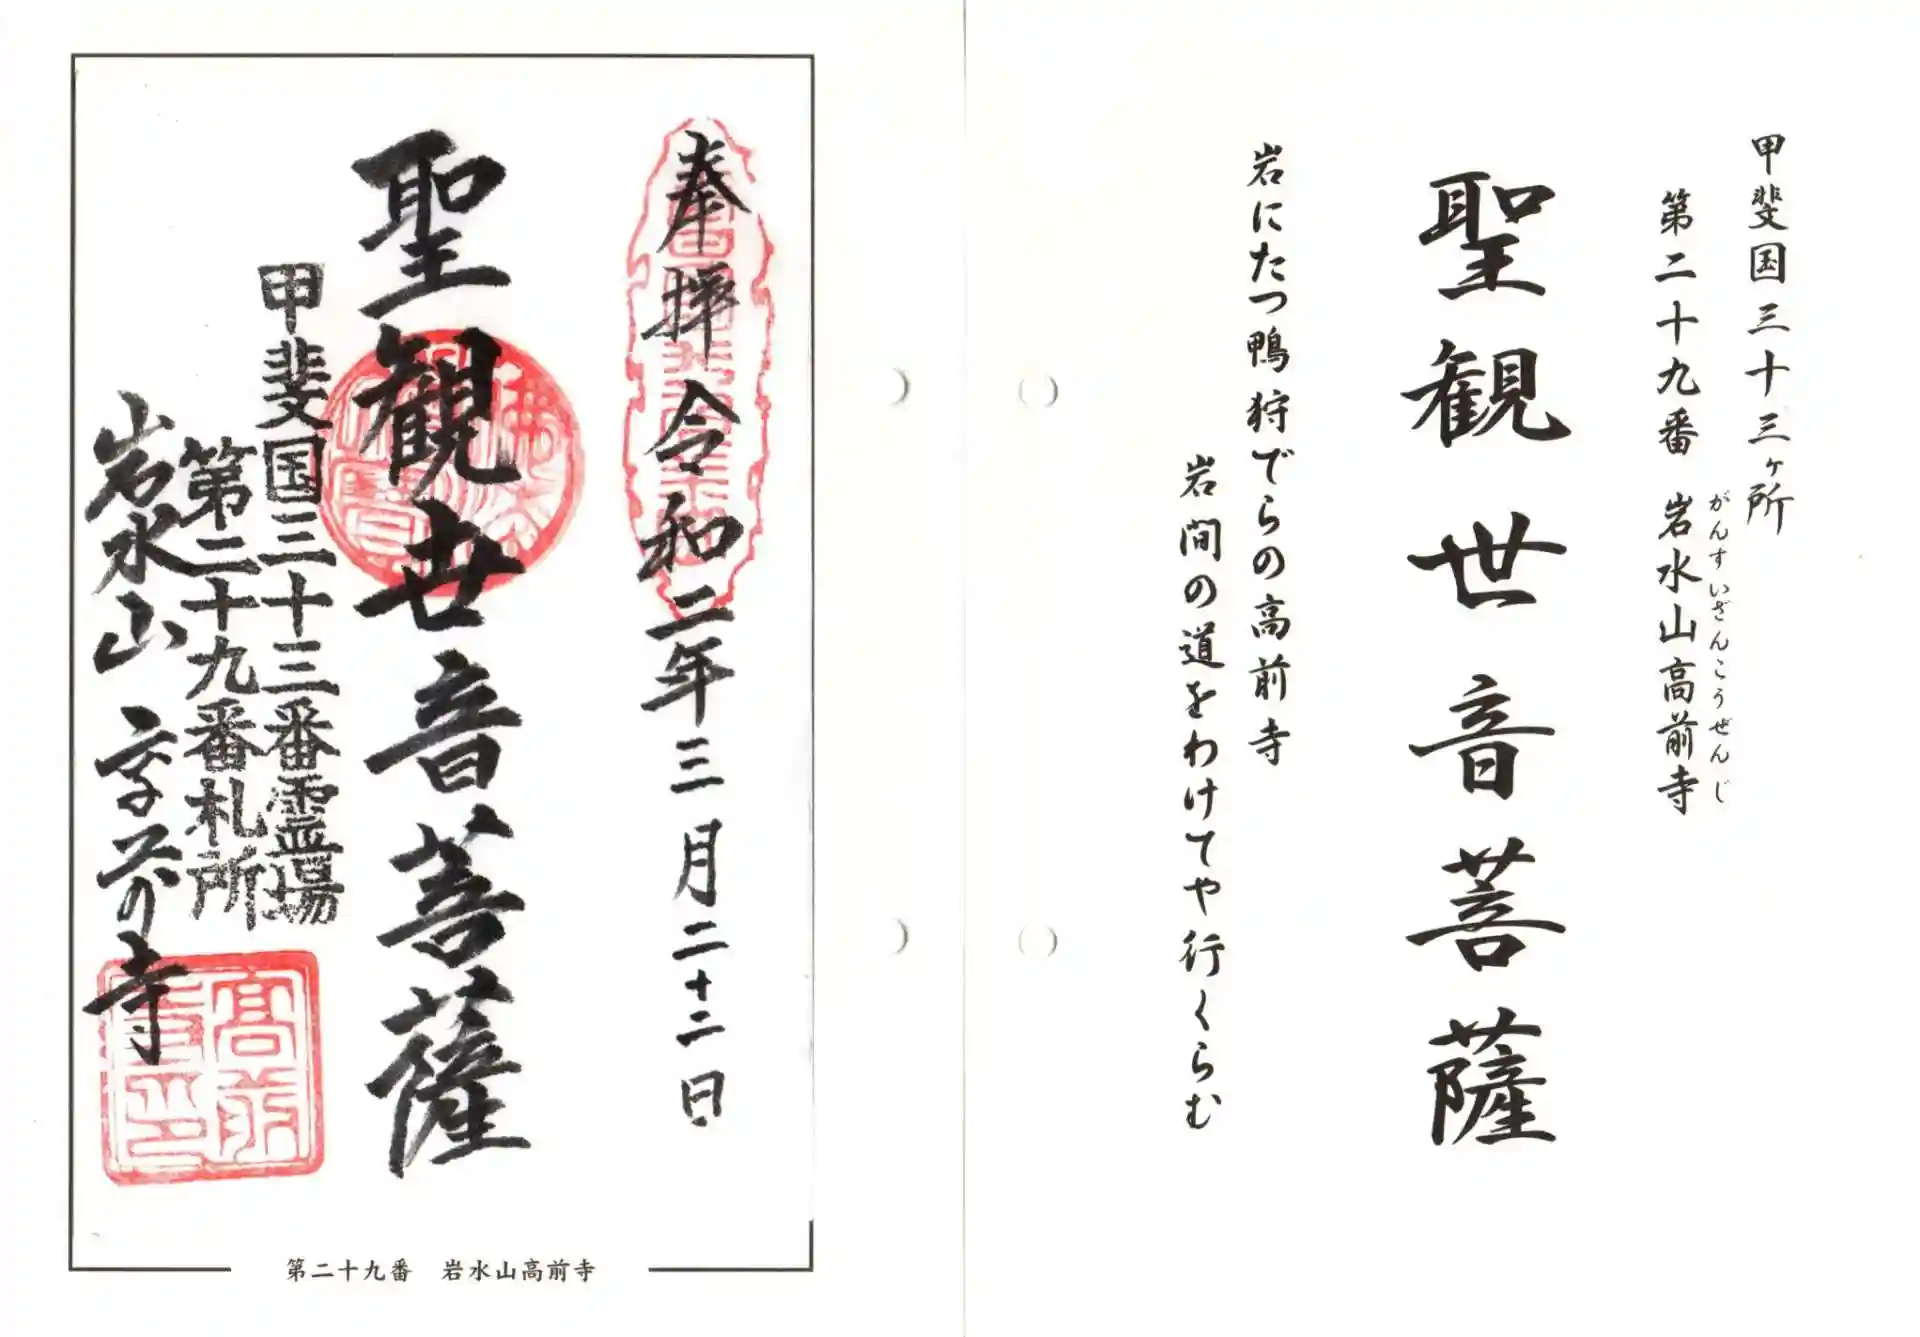 甲斐国三十三ヶ所
第二十九番 岩水山高前寺
がんすいざんこうぜんじ
聖観世音菩薩
岩にたつ鴨狩でらの高前寺
岩間の道をわけてや行くらむ
奉拝 令和二年三月二十二日
聖観世音菩薩
甲斐国三十三番霊場
第二十九番札所
岩水山 高前寺
第二十九番 岩水山高前寺